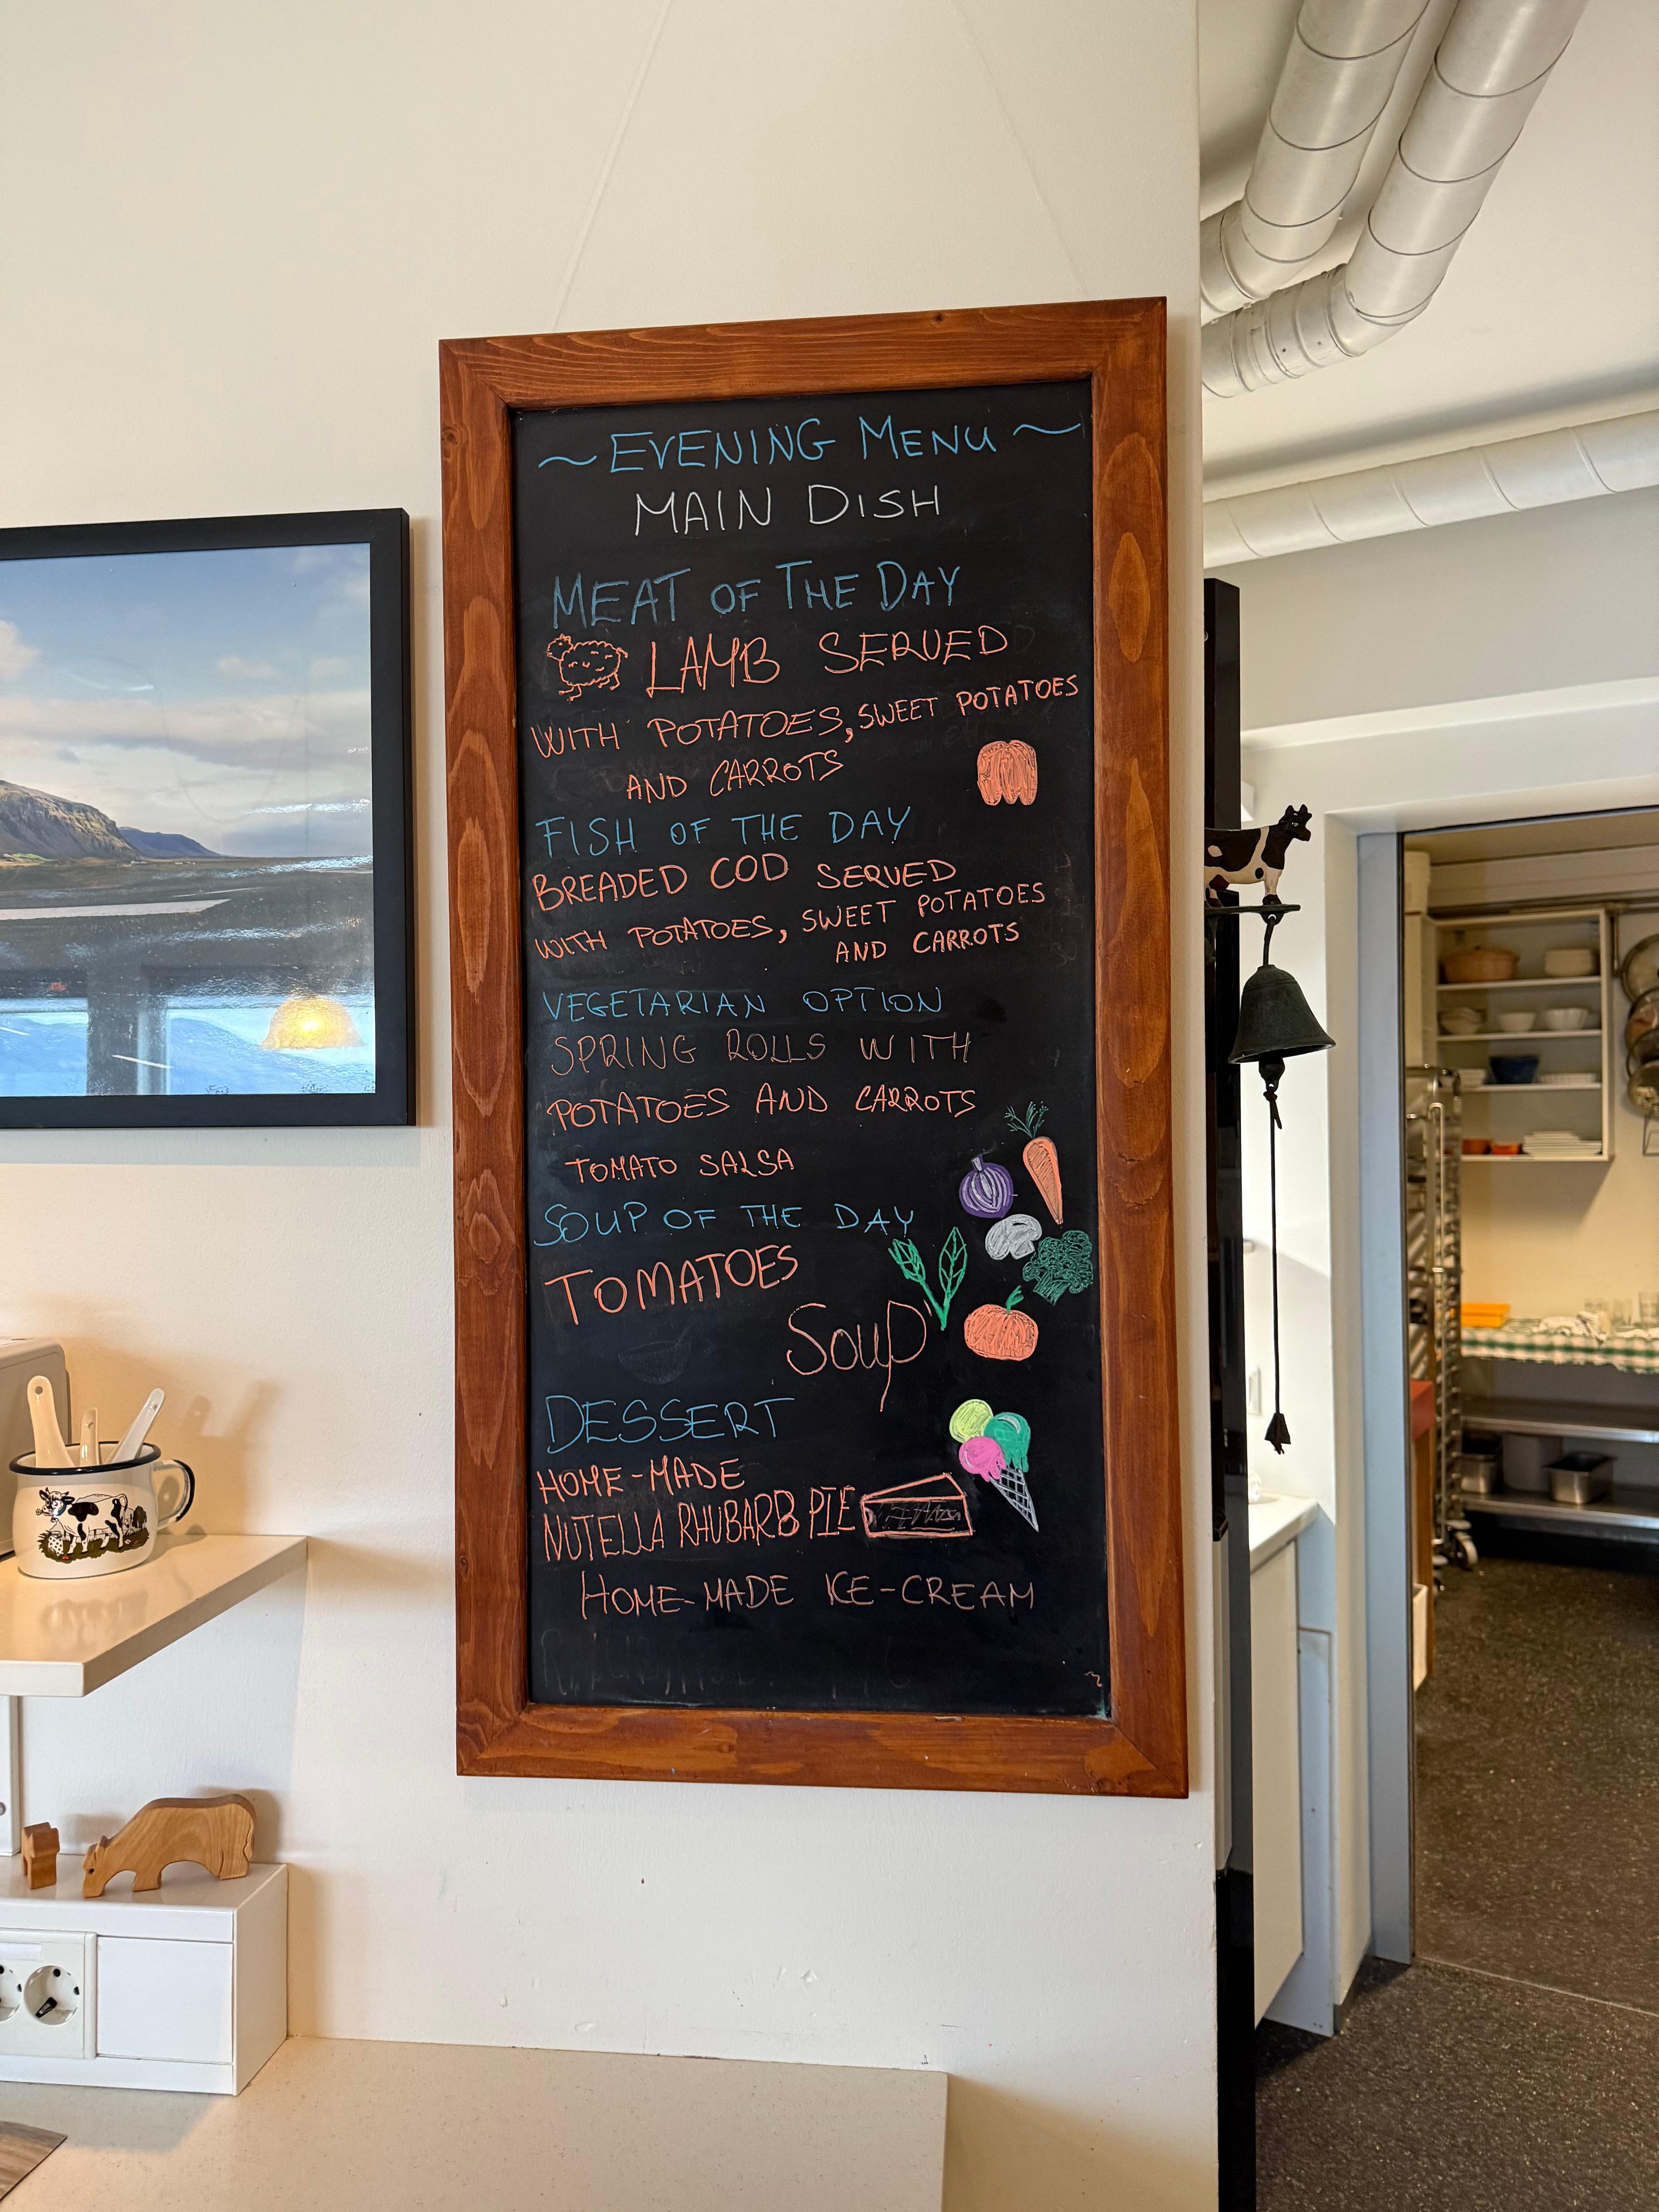 ~ EVENING MENU ~
MAIN DISH
MEAT OF THE DAY
LAMB SERVED
WITH POTATOES, SWEET POTATOES
AND CARROTS
FISH OF THE DAY
BREADED COD SERVED
WITH POTATOES, SWEET POTATOES
AND CARROTS
VEGETARIAN OPTION
SPRING ROLLS WITH
POTATOES AND CARROTS
TOMATO SALSA
SOUP OF THE DAY
TOMATOES
SOUP
DESSERT
HOME-MADE
NUTELLA RHUBARB PIE
HOME-MADE ICE-CREAM